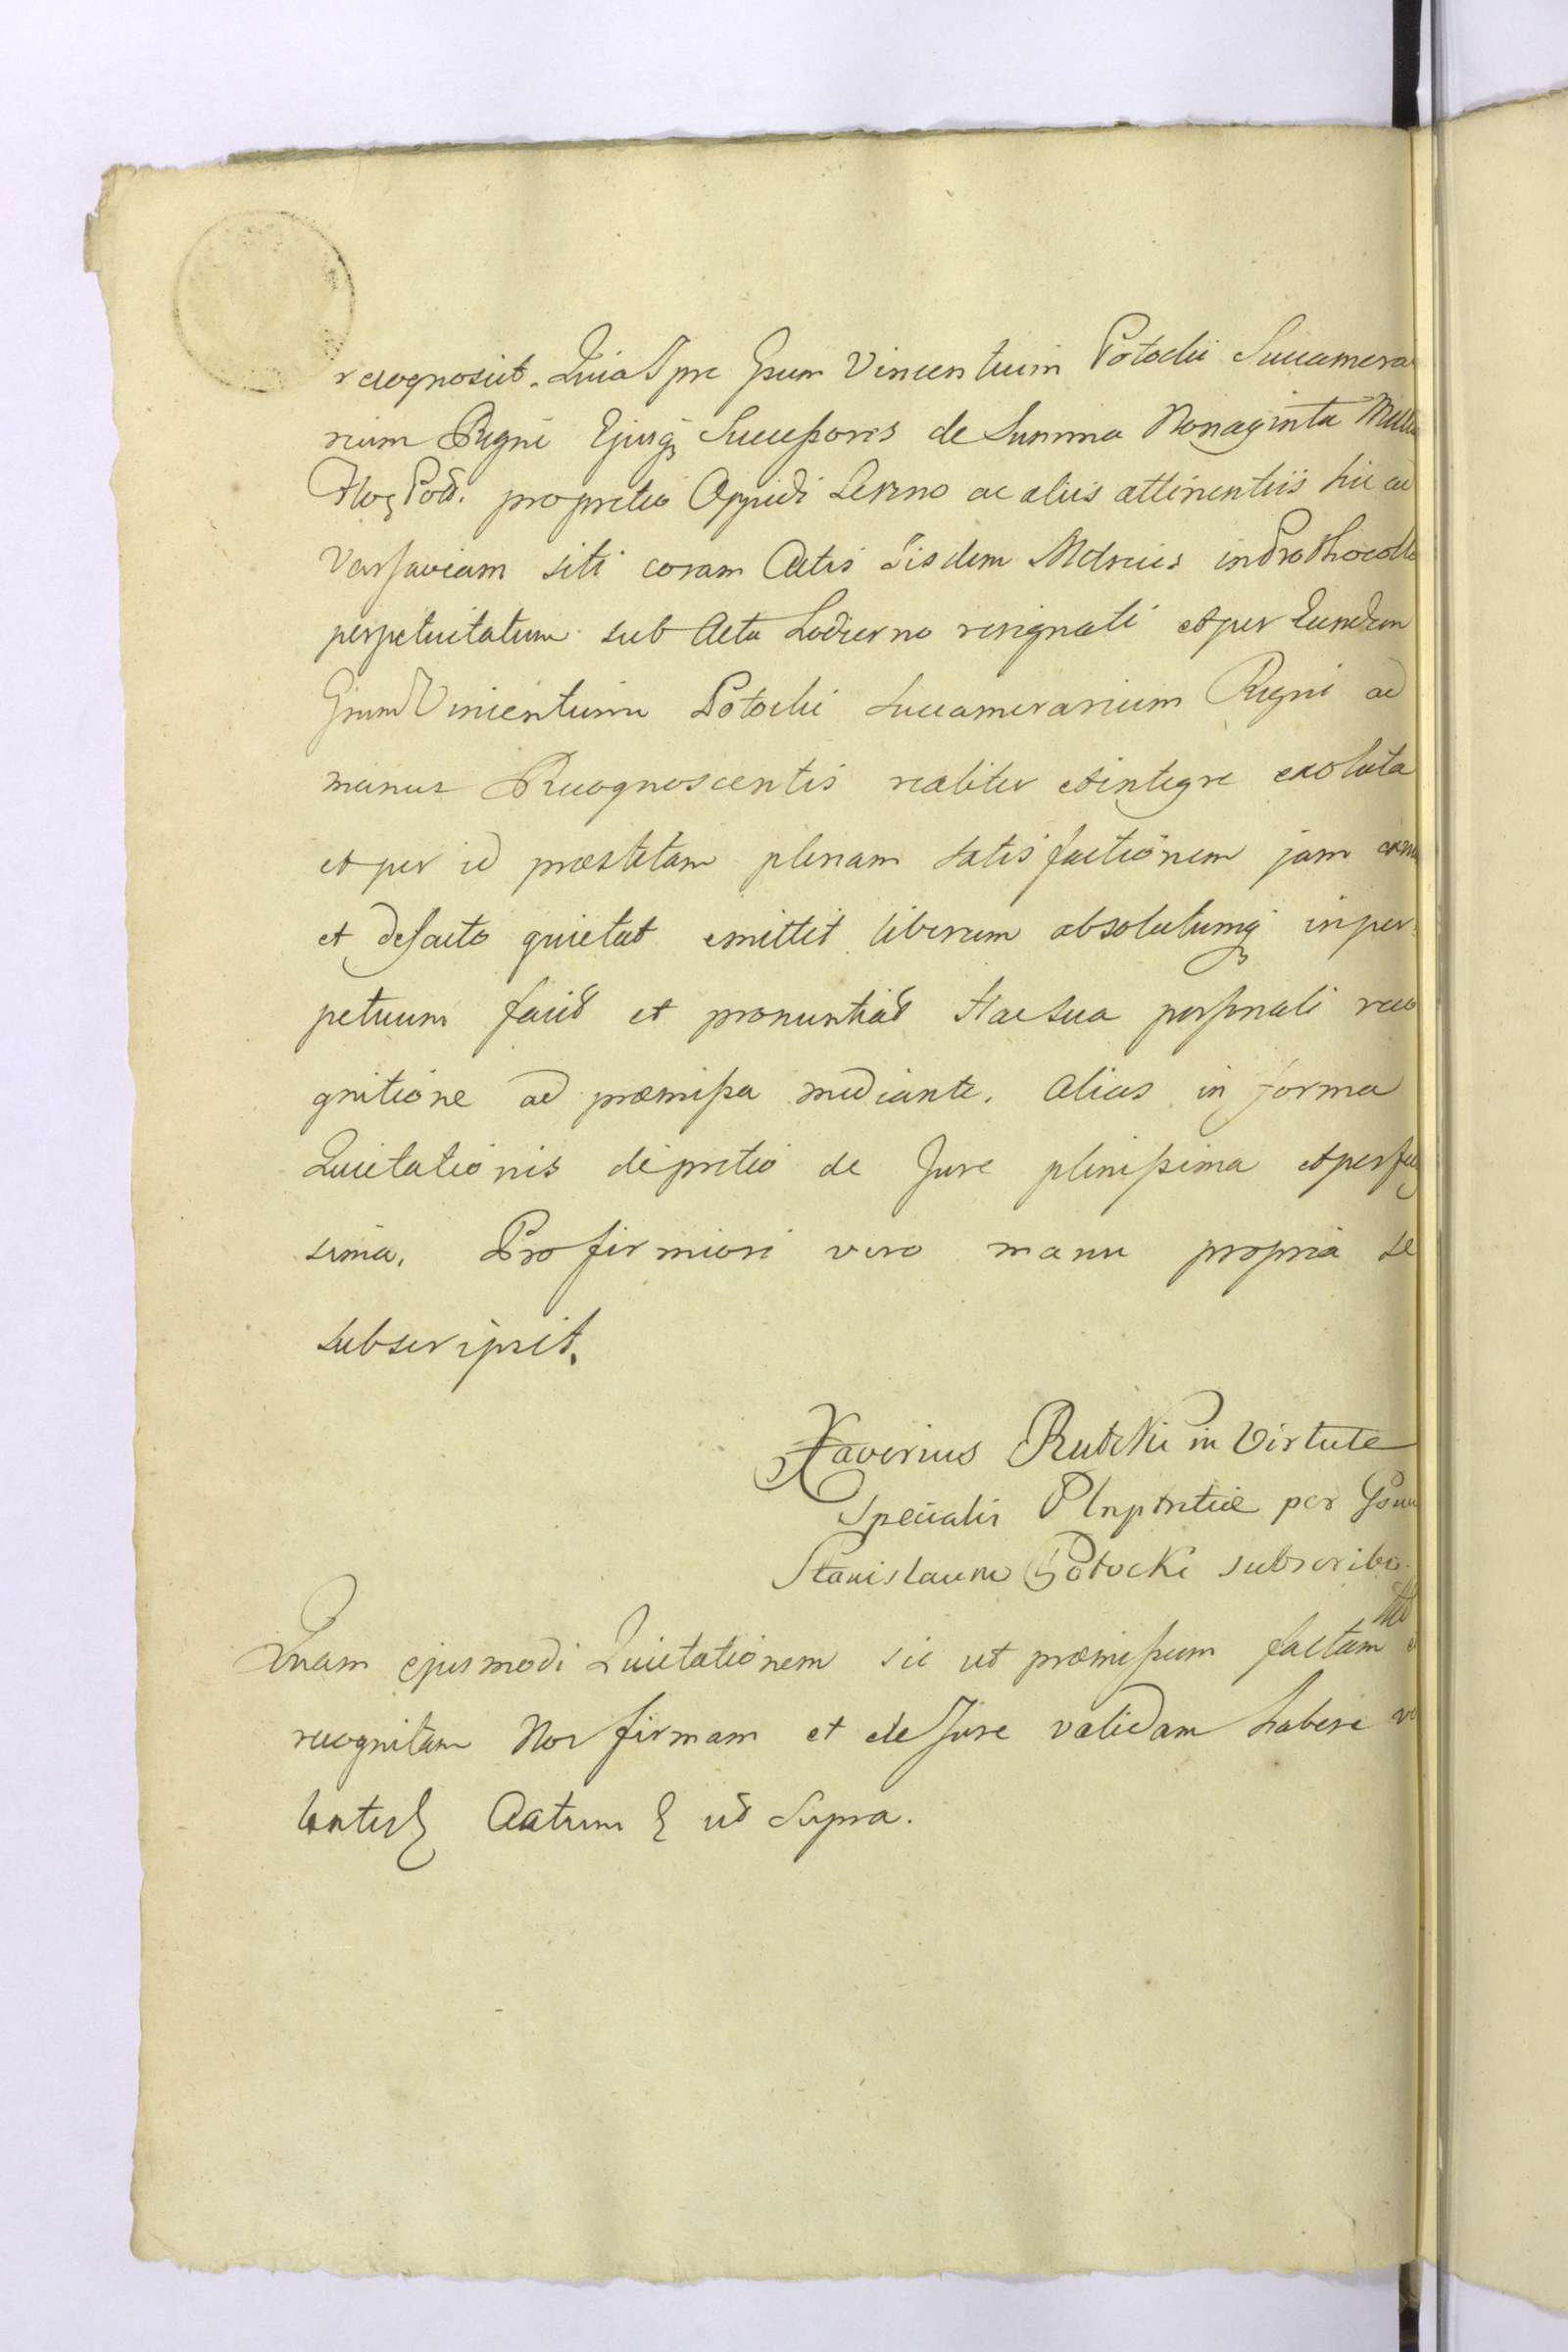 recognoscit. Quia Ipse Gsum Vincentium Potocki Succamera
rium Regni Ejusq; Successores de Summa Nonaginta Mille
Flor; Pol. pro pretio Oppidi Leszno ac aliis attinentiis hic ad
Varsaviam siti coram Actis iisdem Metrices in Prothocollo
perpetuitatum sub Actu hodierno resignati et per Eundem
Gsum Vincentium Potocki Succamerarium Regni ad
manus Recognoscentis realiter et integre exoluta
et per id præstitam plenam satisfactionem jam
et de facto quietat emittit liberum absolutumq; in per
petuum facit et pronuntiat Hac sua personali reco
gnitione ad præmissa mediante. Alias in forma
Quietationis de pretio de Jure plenissima et perfec
sima. Pro firmiori vero manu propria se
subscripsit.
Xaverius Rutcki in Virtute
Specialis Plnptntiæ per Gsum
Stanislaum Potocki subscribo.
Quam ejusmodi Quietationem sic ut præmissum factam
recognitam Nos firmam et de Jure validam habere vo
lentes Actum ut Supra.